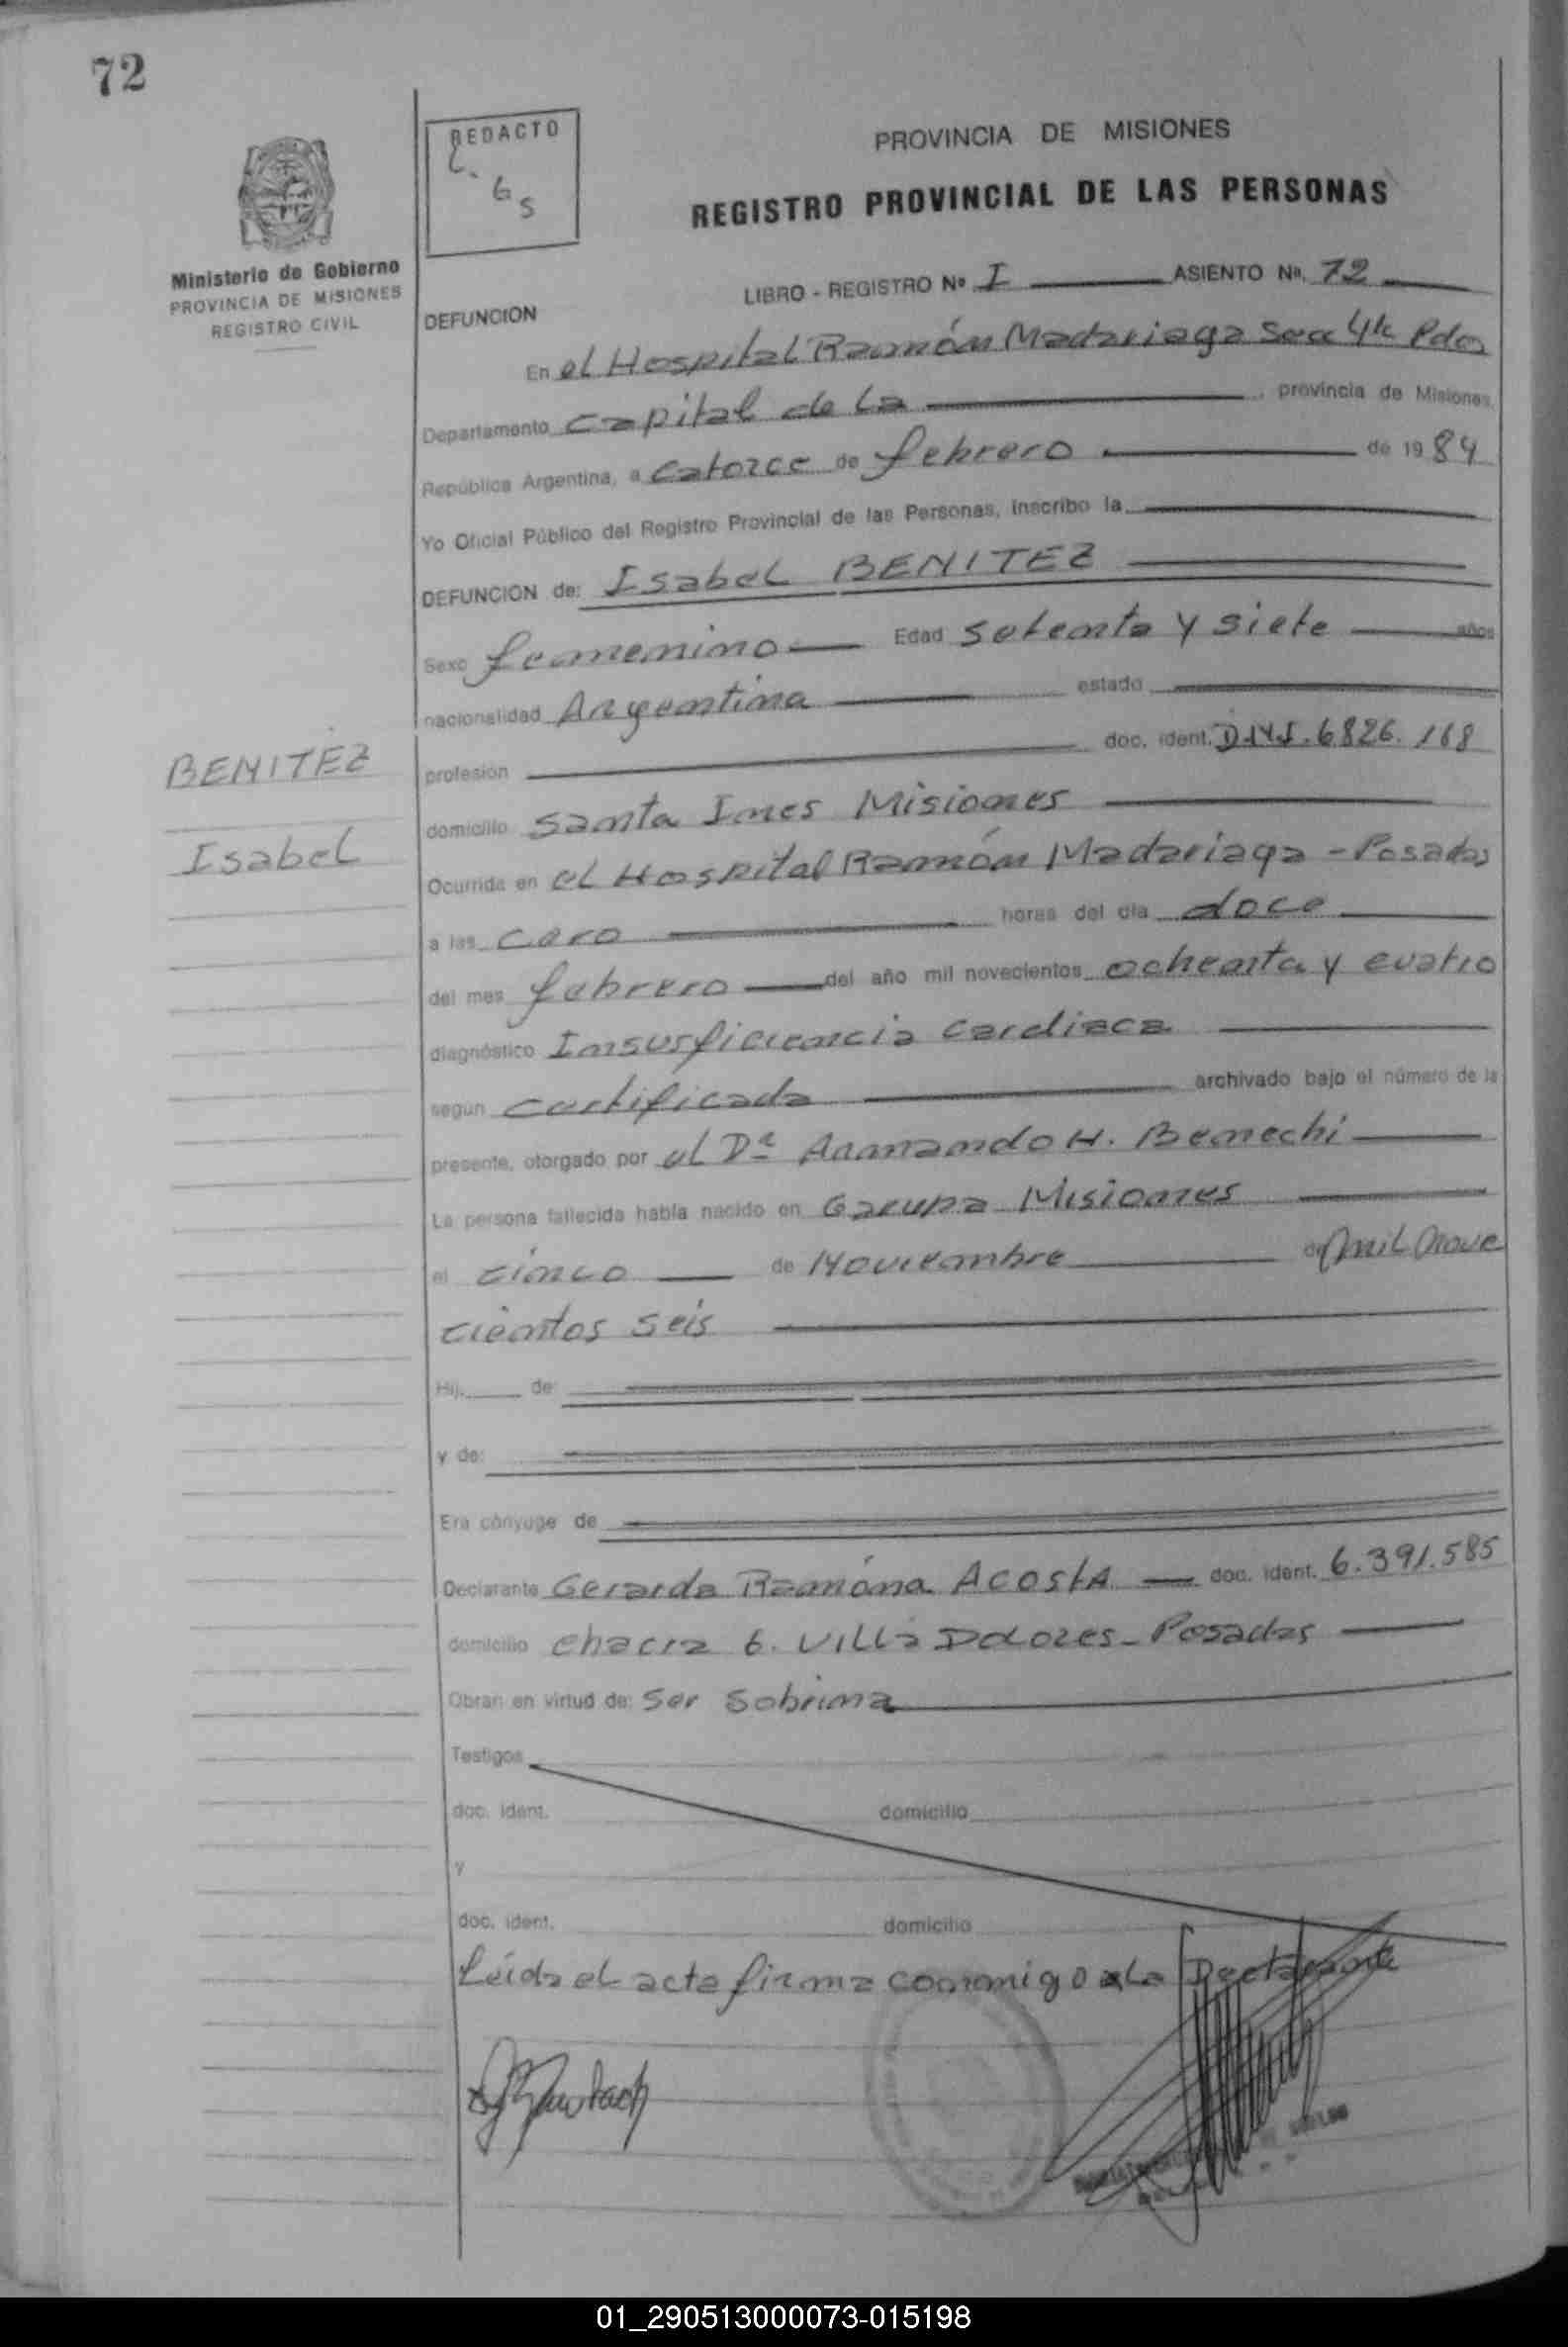 72
REDACTO
L. G S
Ministerio de Gobierno
PROVINCIA DE MISIONES
REGISTRO CIVIL
PROVINCIA DE MISIONES
REGISTRO PROVINCIAL DE LAS PERSONAS
LIBRO - REGISTRO Nº I ASIENTO Nº. 72
DEFUNCION
En el Hospital Ramón Madariaga Secc 4ta Pdas
Departamento Capital de La provincia de Misiones,
República Argentina, a catorce de febrero de 1984
Yo Oficial Público del Registro Provincial de las Personas, inscribo la
DEFUNCION de: Isabel BENITEZ
Sexo femenino Edad setenta y siete años
nacionalidad Argentina estado
profesión doc. ident. D.N.I. 6826.168
BENITEZ
Isabel
domicilio Santa Ines Misiones
Ocurrida en el Hospital Ramón Madariaga - Posadas
a las cero horas del día doce
del mes febrero del año mil novecientos ochenta y cuatro
diagnóstico Insusficiencia cardiaca
según certificado archivado bajo el número de la
presente, otorgado por el Dr Armando H. Benechi
La persona fallecida había nacido en Garupa Misiones
el cinco de Noviembre de mil nove
cientos seis
Hij. de:
y de:
Era cónyuge de
Declarante Gerarda Ramóna ACOStA doc. ident. 6.391.585
domicilio chacra 6. Villa Dolores - Posadas
Obran en virtud de: ser sobrina
Testigos
doc. ident. domicilio
y
doc. ident. domicilio
Leída el acta firma conmigo la Declarante
01_290513000073-015198